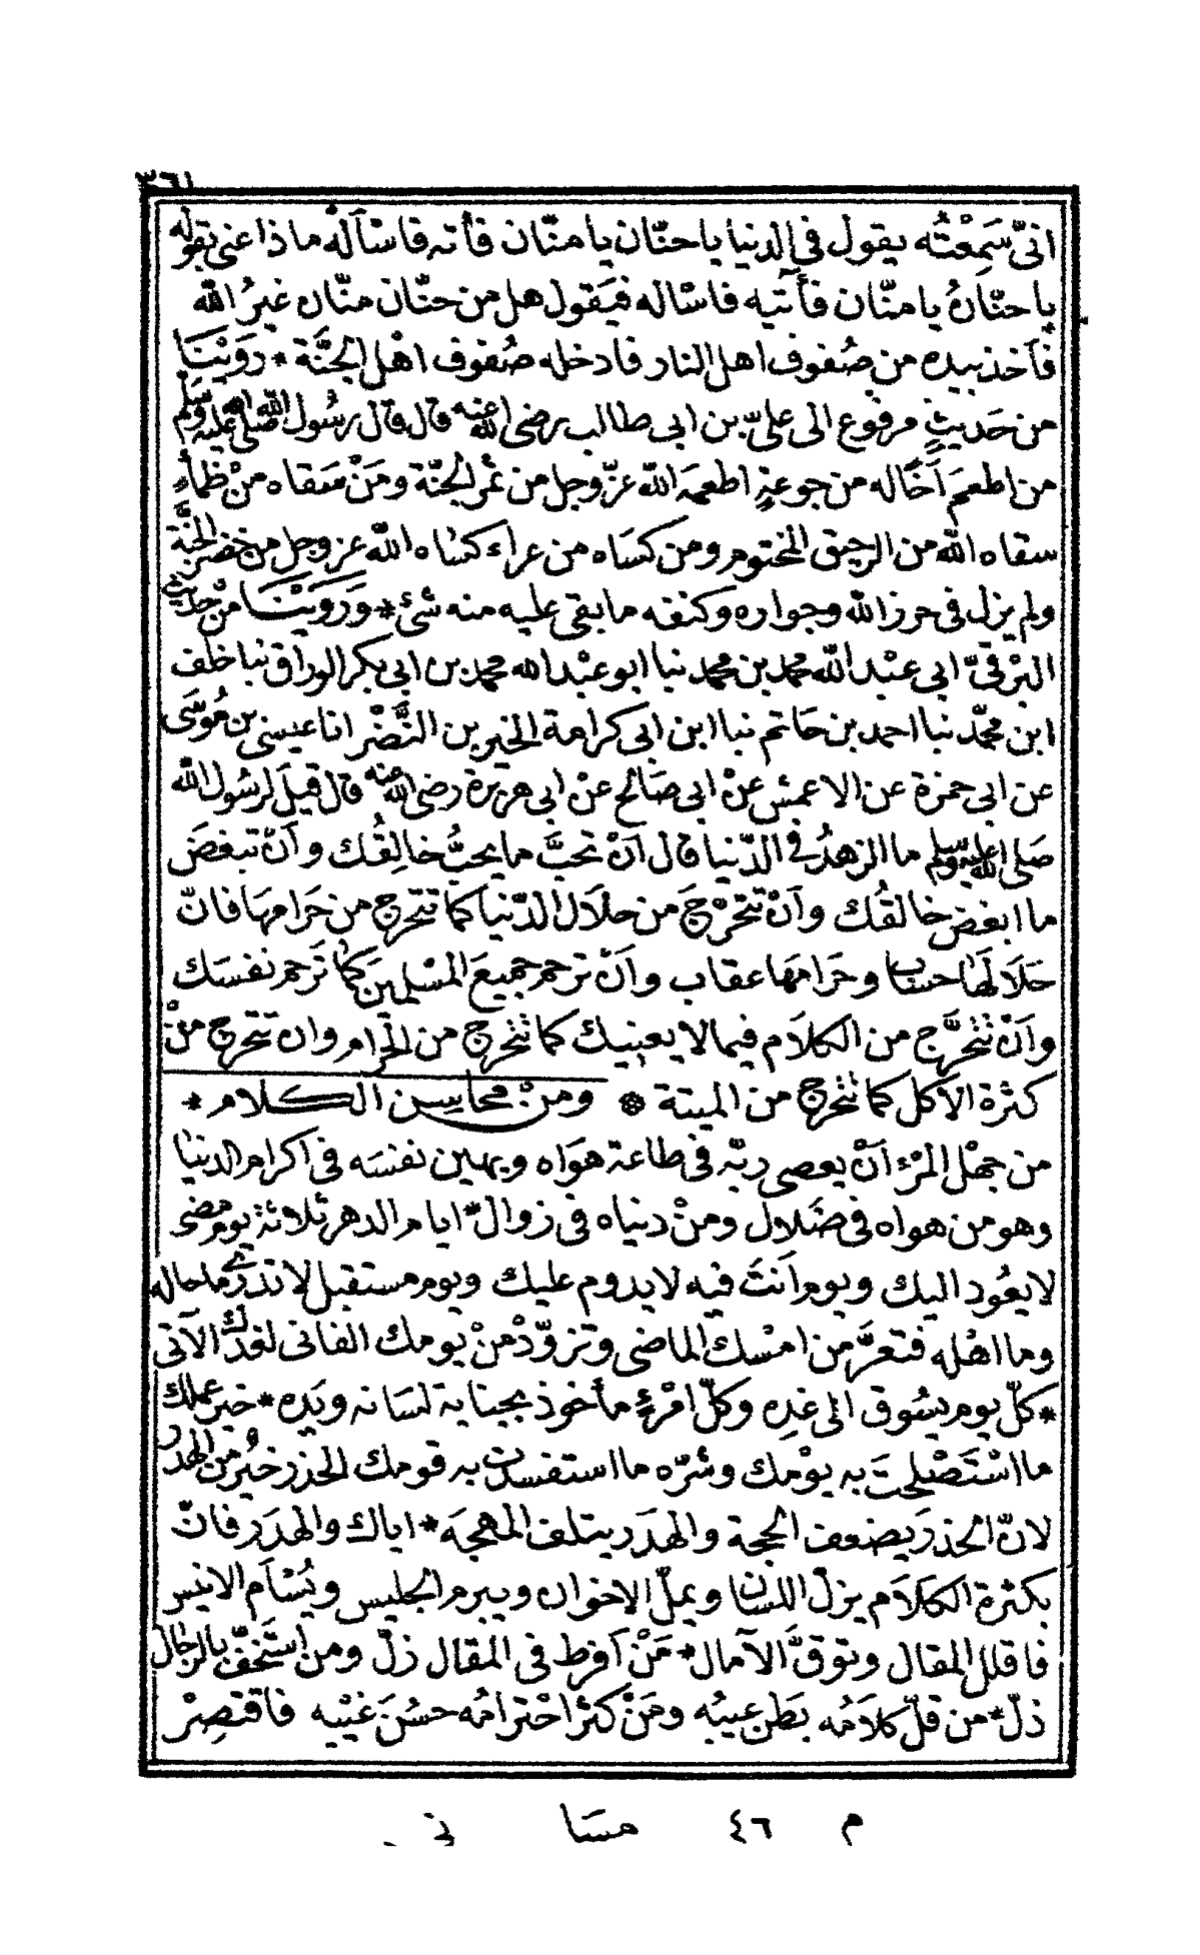 ٣٦١
انّى سَمِعْتُه يقول فى الدنيا يا حنّان يا منّان فأته فاسْألْه ماذا عنى بقوله
يا حنّان يا منّان فأتيه فاسْاله فيَقول هل من حنّان منّان غيرُ الله
فآخذ بيده من صُفوف اهل النار فادخله صُفوف اهْل الجنَّة * روَيْنَا
من حَديثٍ مرفوع الى علىّ بن ابى طالب رضى الله عنه قال قال رسُول الله صلى الله عليه وسلم
من اطعمَ اَخًا له من جوعةٍ اطعمَه الله عزّ وجل من ثمر الجنّة ومَنْ سَقاه مِنْ ظمأٍ
سقاه الله من الرحيق المختوم ومن كسَاه من عراء كسَاه الله عز وجل من خضر الجنَّة
ولم يزل فى حرز الله وجواره وكنفه ما بقى عليه منه شئ * ورَوَيْنَا منْ حديث
البَرْقىّ ابى عبْد الله محمد بن محمد نبا ابو عبْد الله محمد بن ابى بكر الوراق نبا خلف
ابن محمّد نبا احمد بن حَاتم نبا ابن ابى كرامة الخير بن النَّضْر انا عيسى بن مُوسَى
عن ابى حمزة عن الاعمش عنْ ابى صَالح عنْ ابى هريرة رضى الله عنه قال قيلَ لرسُول الله
صَلى الله عليه وسلم ما الزهدُ فى الدّنيا قال اَنْ تحبَّ ما يحبُّ خالِقُك واَنْ تبغضَ
ما ابغض خالقُك واَنْ تتحرّجَ من حلاَل الدّنيا كما تتحرج من حَرَامهَا فانّ
حَلاَلهَا حسَاب وحَرَامهَا عقاب واَنْ ترحم جميعَ المسْلمينَ كما تَرحم نفسَك
واَنْ تتحرَّج من الكلاَم فيما لا يعنيك كما تتحرج من الحَرام وان تتحرج منْ
كثرة الاَكل كما تتحرج من الميتة * ومنْ محاسن الكلام *
من جهْل المرْء اَنْ يعصى ربّه فى طاعة هوَاه ويهين نفسَه فى اكرام الدنيا
وهو من هواه فى ضَلال ومنْ دنياه فى زوال * ايام الدهر ثلاثة يوم مضى
لا يعُود اليك ويوم اَنتَ فيه لا يدوم عليك ويوم مستقبل لا تدرى ما حاله
وما اهْله فتعزَّ من امْسك الماضى وتزوّدْ منْ يومك الفانى لغدك الآتى
* كلّ يوم يسُوق الى غدِه وكلّ امْرئٍ مأخوذ بجناية لسَانه ويَده * خير عملك
ما اسْتَصْلحتَ به يوْمك وشرّه ما استفسدت به قومك الحذر خيرٌ من الهدر
لانّ الحذرَ يضعف الحجة والهدَر يتلف المهجَه * اياك والهدَر فانّ
بكثرة الكلاَم يزلّ اللسَان ويملّ الاخوان ويبرم الجليس ويُسْاَم الانيس
فاقلل المقال وتوقَّ الآمال * مَنْ اَفرط فى المقال زلّ ومن استَخفّ بالرجَال
ذلّ * من قلّ كلاَمُه بَطن عيبُه ومَنْ كثر احْترامُه حسُنَ غيْبه فاقتصِرْ
م ٤٦ مسَا نى